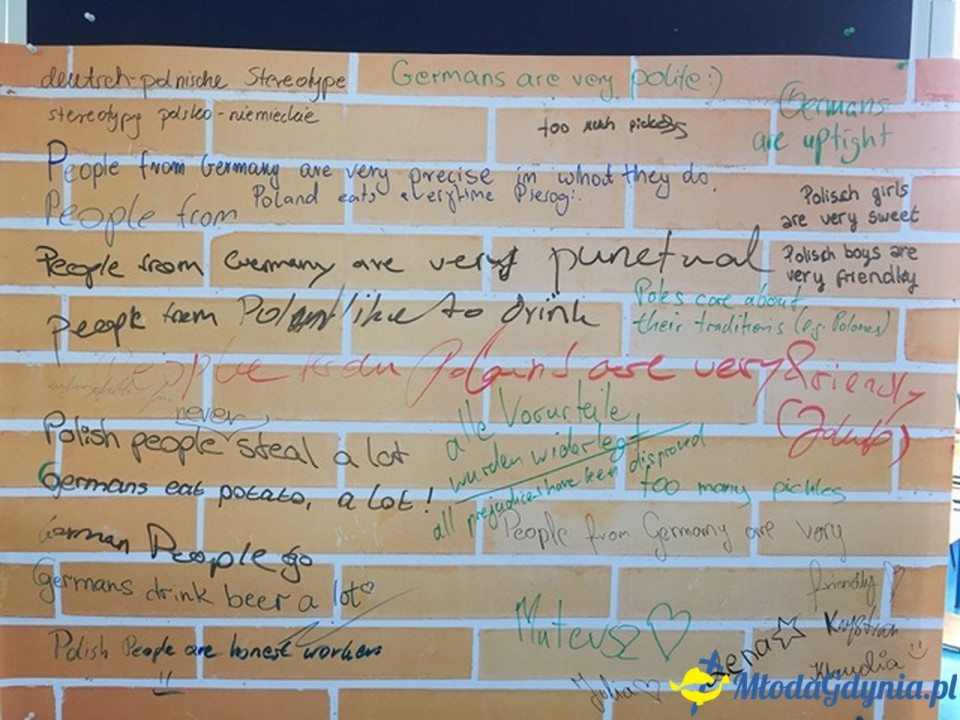 deutsch-polnische Stereotype
Germans are very polite:)
stereotypy polsko-niemieckie
too
Germans
are uptight
People from Germany are very precise in what they do.
People from Poland eats everytime Pierogi..
Polisch girls
are very sweet
People from Germany are very punctual
Polisch boys are
very friendly
People from Poland like to drink
Poles care about
their traditions (e.g. Polonez)
People from Poland are very friendly
never
Polish people steal a lot
alle Vorurteile
wurden widerlegt
all prejudices have been disproved
Germans eat potato, a lot!
too many pickles
German People go
People from Germany are very
friendly
Germans drink beer a lot
Mateusz
Polish People are honest workers
Julia
Lena
Krystian
Klaudia
MłodaGdynia.pl